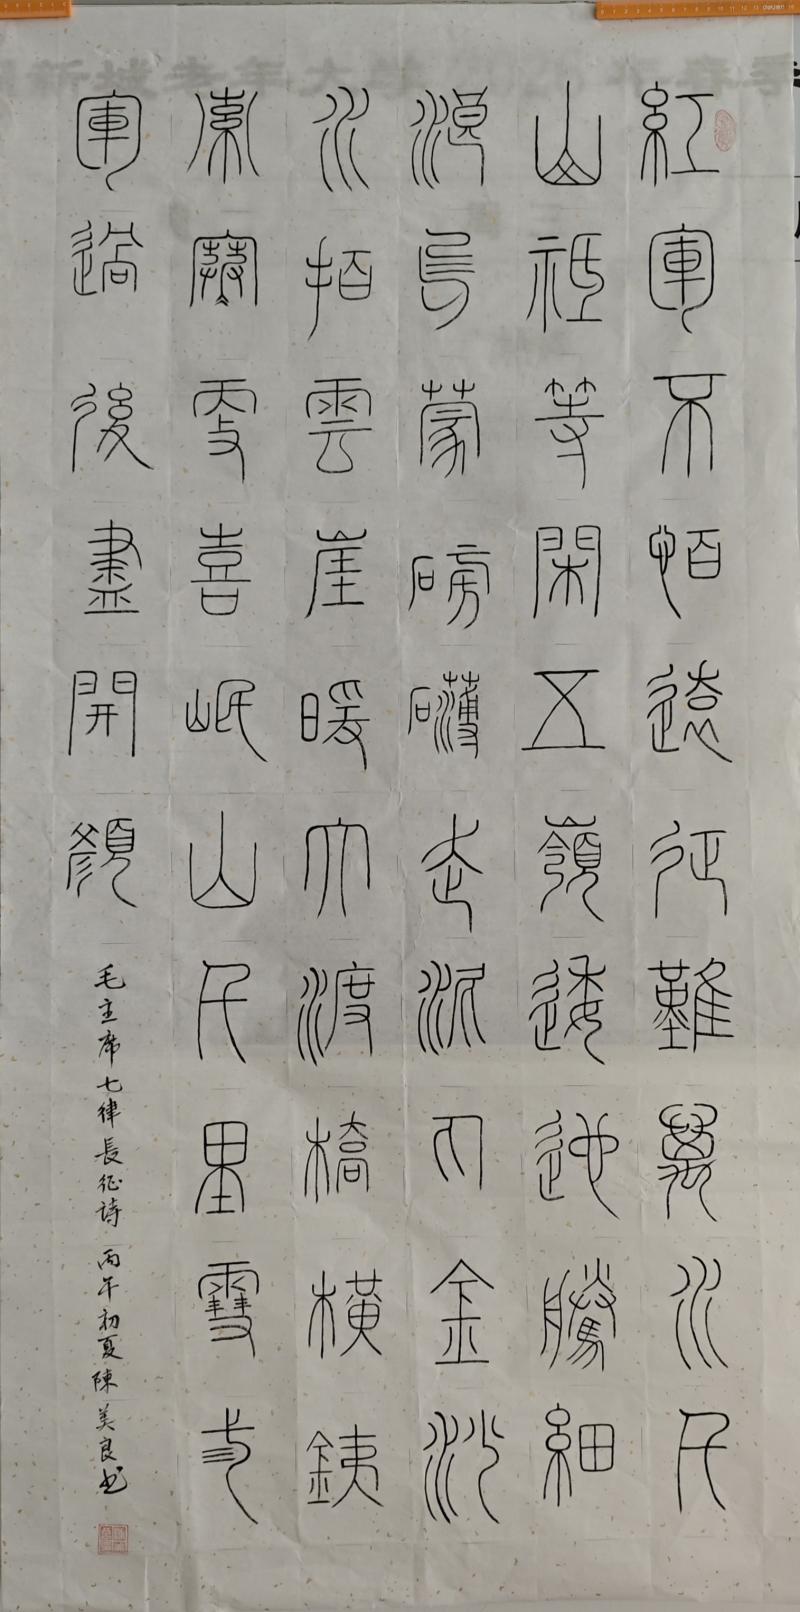 紅軍不怕遠征難萬水千
山祗等閑五嶺逶迤騰細
浪烏蒙磅礴走泥丸金沙
水拍雲崖暖大渡橋橫銕
索寒更喜岷山千里雪弎
軍過後盡開顏
毛主席七律長征詩 丙午初夏陳美良书